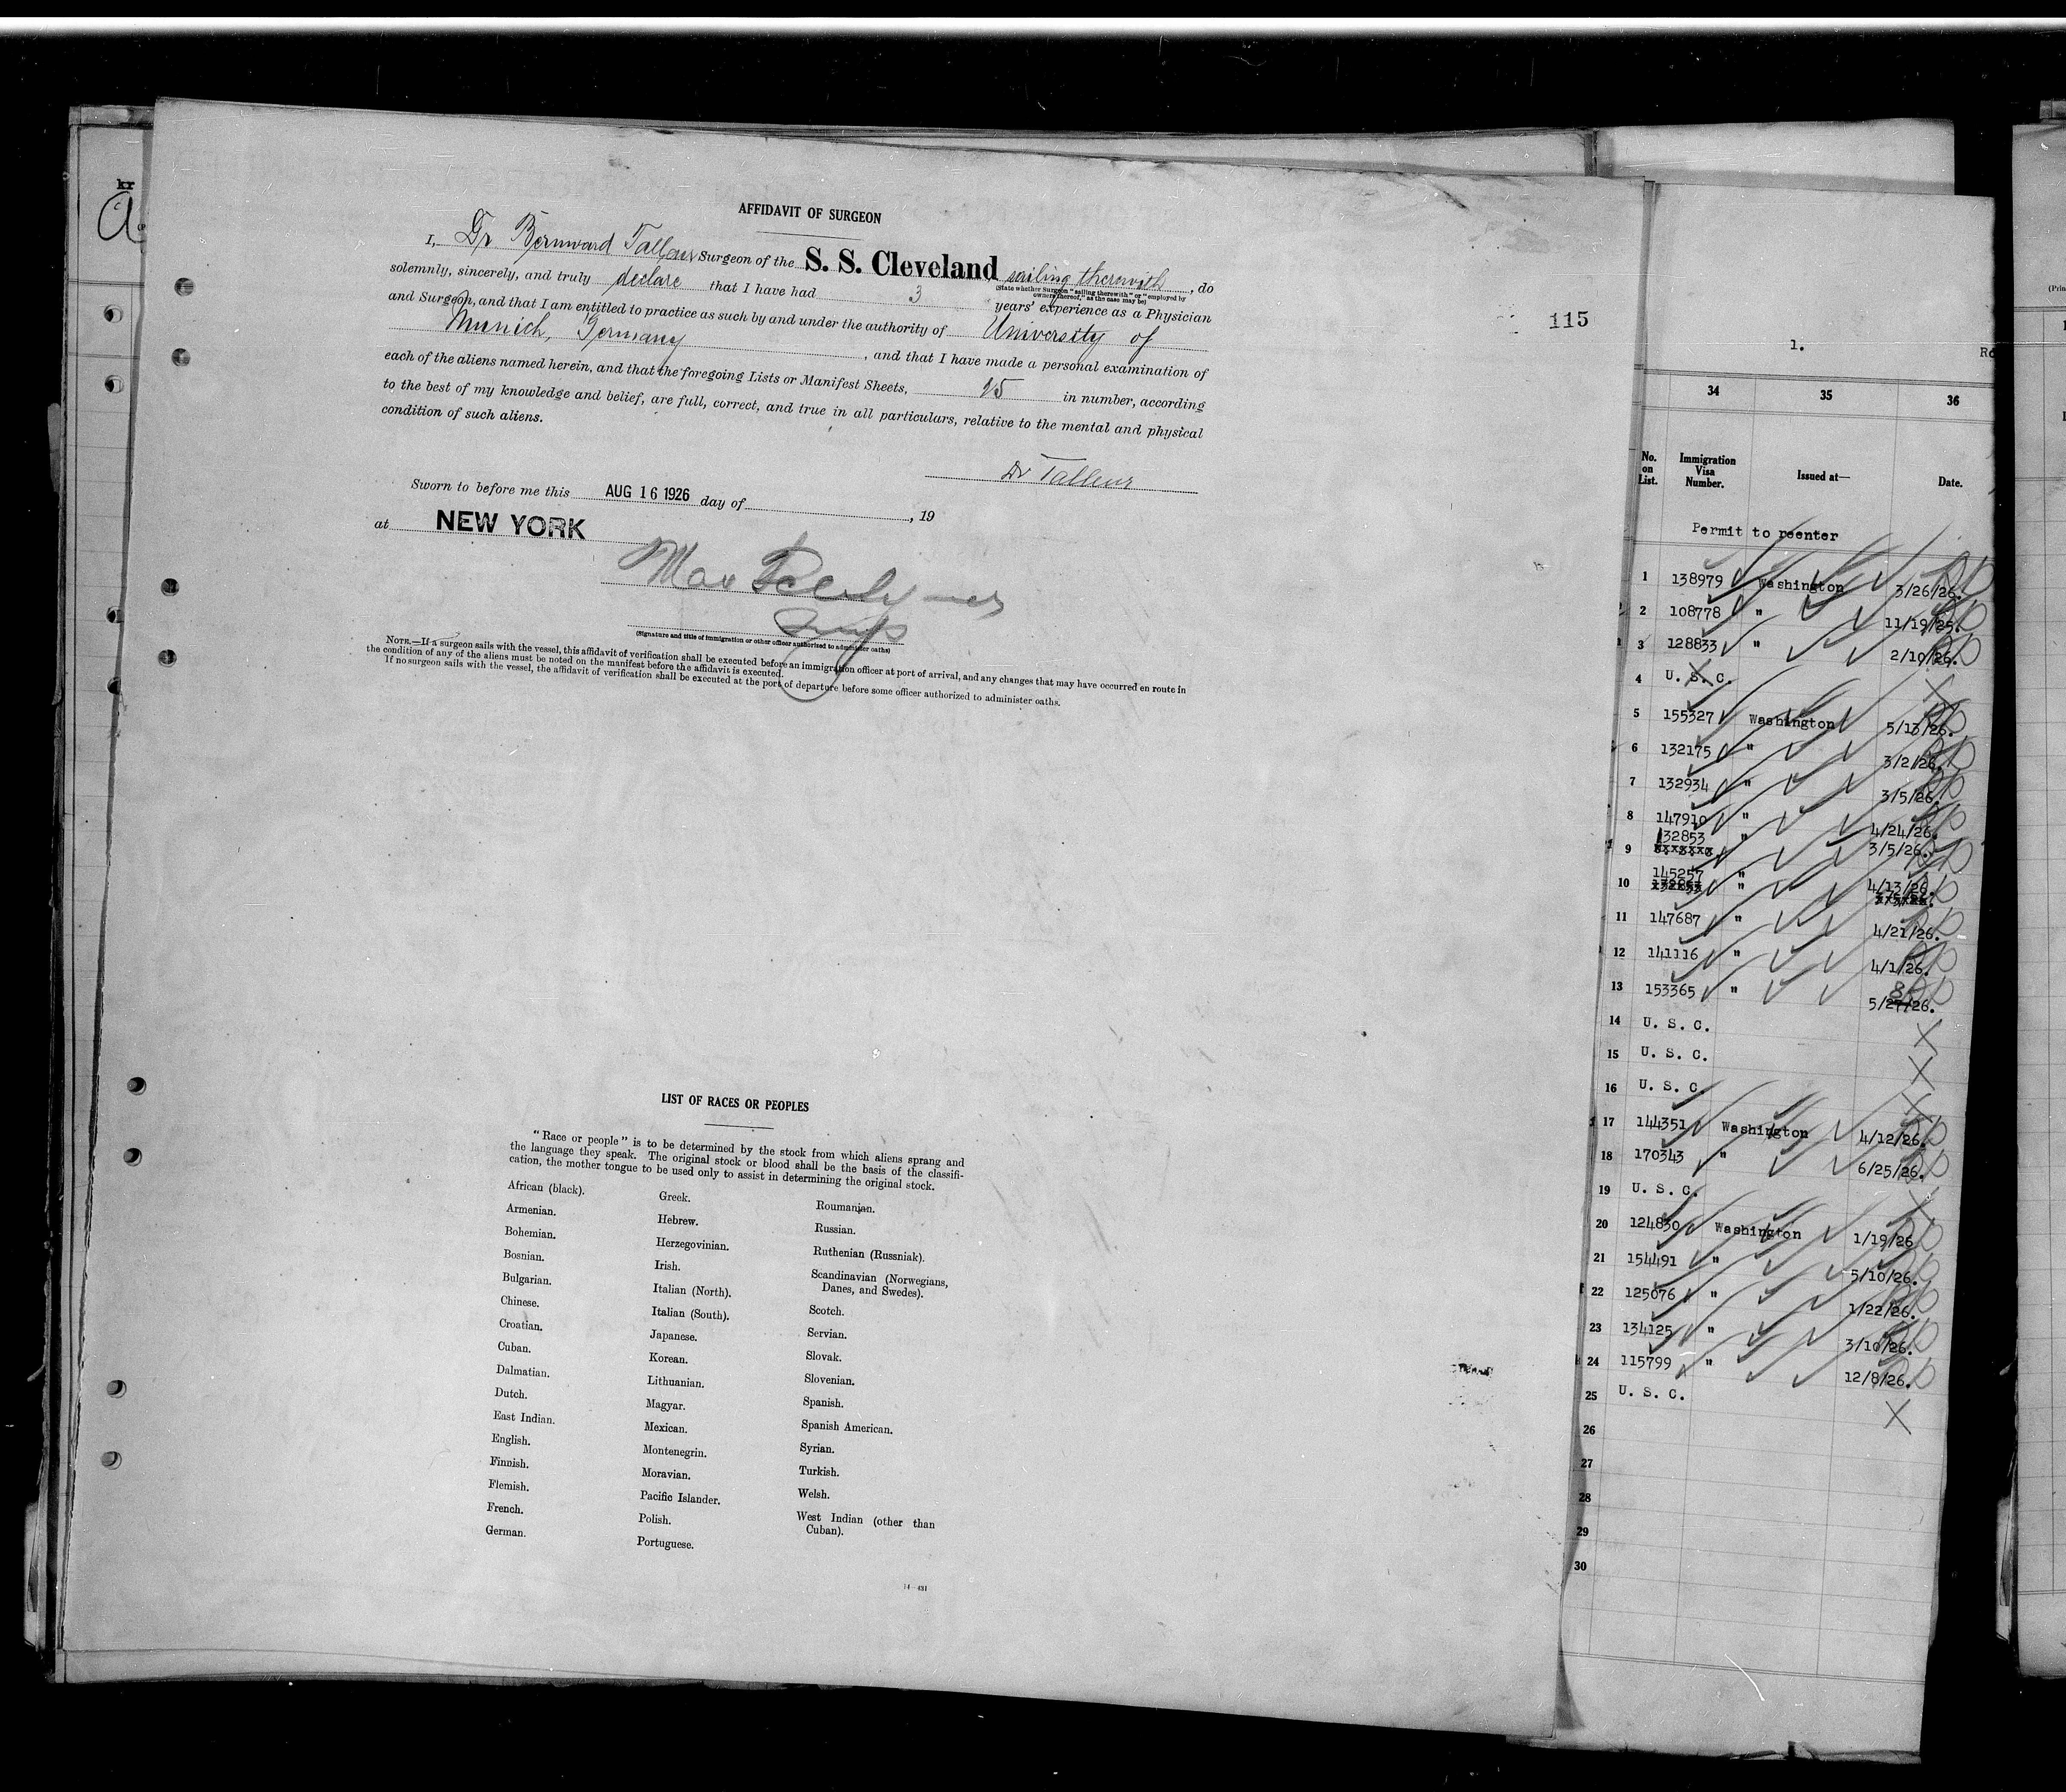 kr
AFFIDAVIT OF SURGEON
I, Dr Bernward Surgeon of the S. S. Cleveland, sailing therewith, do
(State whether Surgeon "sailing therewith" or "employed by
owners thereof," as the case may be)
solemnly, sincerely, and truly declare that I have had 3 years' experience as a Physician
and Surgeon, and that I am entitled to practice as such by and under the authority of University of
Munich, Germany, and that I have made a personal examination of
each of the aliens named herein, and that the foregoing Lists or Manifest Sheets, 25 in number, according
to the best of my knowledge and belief, are full, correct, and true in all particulars, relative to the mental and physical
condition of such aliens.
Dr
Sworn to before me this AUG 16 1926 day of , 19
at NEW YORK
Max
(Signature and title of immigration or other officer authorized to administer oaths)
NOTE.—If a surgeon sails with the vessel, this affidavit of verification shall be executed before an immigration officer at port of arrival, and any changes that may have occurred en route in
the condition of any of the aliens must be noted on the manifest before the affidavit is executed.
If no surgeon sails with the vessel, the affidavit of verification shall be executed at the port of departure before some officer authorized to administer oaths.
LIST OF RACES OR PEOPLES
"Race or people" is to be determined by the stock from which aliens sprang and
the language they speak. The original stock or blood shall be the basis of the classifi-
cation, the mother tongue to be used only to assist in determining the original stock.
African (black).
Armenian.
Bohemian.
Bosnian.
Bulgarian.
Chinese.
Croatian.
Cuban.
Dalmatian.
Dutch.
East Indian.
English.
Finnish.
Flemish.
French.
German.
Greek.
Hebrew.
Herzegovinian.
Irish.
Italian (North).
Italian (South).
Japanese.
Korean.
Lithuanian.
Magyar.
Mexican.
Montenegrin.
Moravian.
Pacific Islander.
Polish.
Portuguese.
Roumanian.
Russian.
Ruthenian (Russniak).
Scandinavian (Norwegians,
Danes, and Swedes).
Scotch.
Servian.
Slovak.
Slovenian.
Spanish.
Spanish American.
Syrian.
Turkish.
Welsh.
West Indian (other than
Cuban).
115
1.
34 35 36
No. on List. Immigration Visa Number. Issued at— Date.
Permit to reenter
1 138979 Washington 3/26/26.
2 108778 " 11/19/25.
3 128833 " 2/10/26.
4 U. S. C.
5 155327 Washington 5/13/26.
6 132175 " 3/2/26.
7 132934 " 3/5/26.
8 147910 " 4/24/26.
9 132853 " 3/5/26.
10 145257 " 4/13/26.
11 147687 " 4/21/26.
12 141116 " 4/1/26.
13 153365 " 5/27/26.
14 U. S. C.
15 U. S. C.
16 U. S. C.
17 144351 Washington 4/12/26.
18 170343 " 6/25/26.
19 U. S. C.
20 124830 Washington 1/19/26
21 154491 " 5/10/26.
22 125076 " 1/22/26.
23 134125 " 3/10/26.
24 115799 " 12/8/26.
25 U. S. C.
26
27
28
29
30